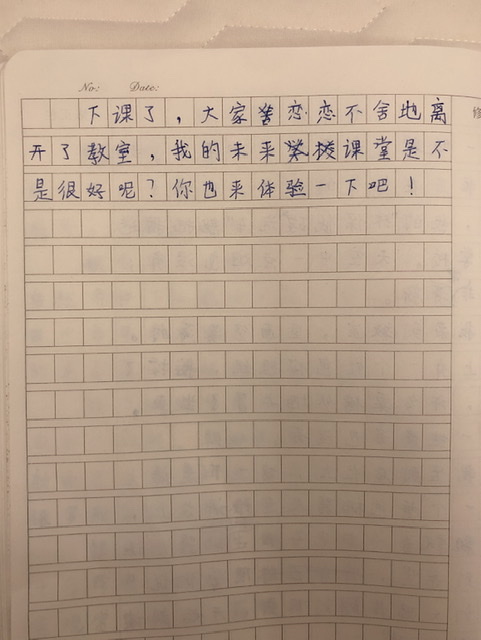 No: Date:
下课了，大家恋恋不舍地离
开了教室，我的未来学校课堂是不
是很好呢？你也来体验一下吧！